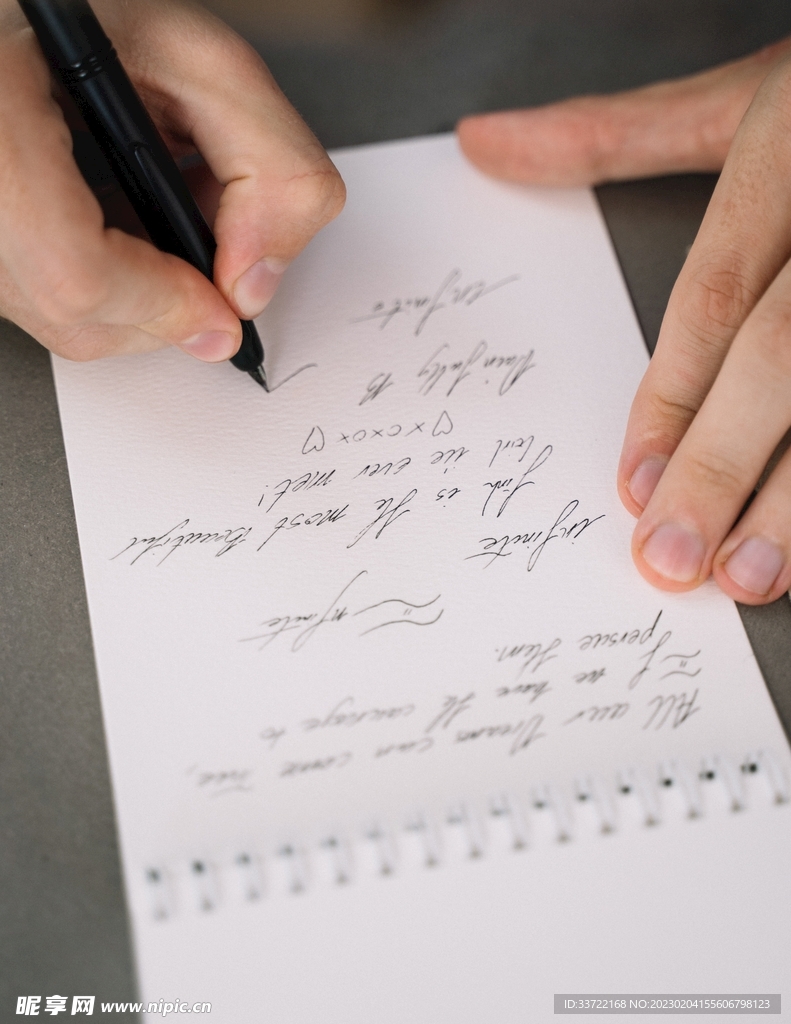 All our Dream can come True,
if we have the courage to
persue them.
infinite
infinite
is the most Beautiful
we ever met!
♡xoxo♡
Painfully B
infinite
昵享网 www.nipic.cn
ID:33722168 NO:20230204155606798123